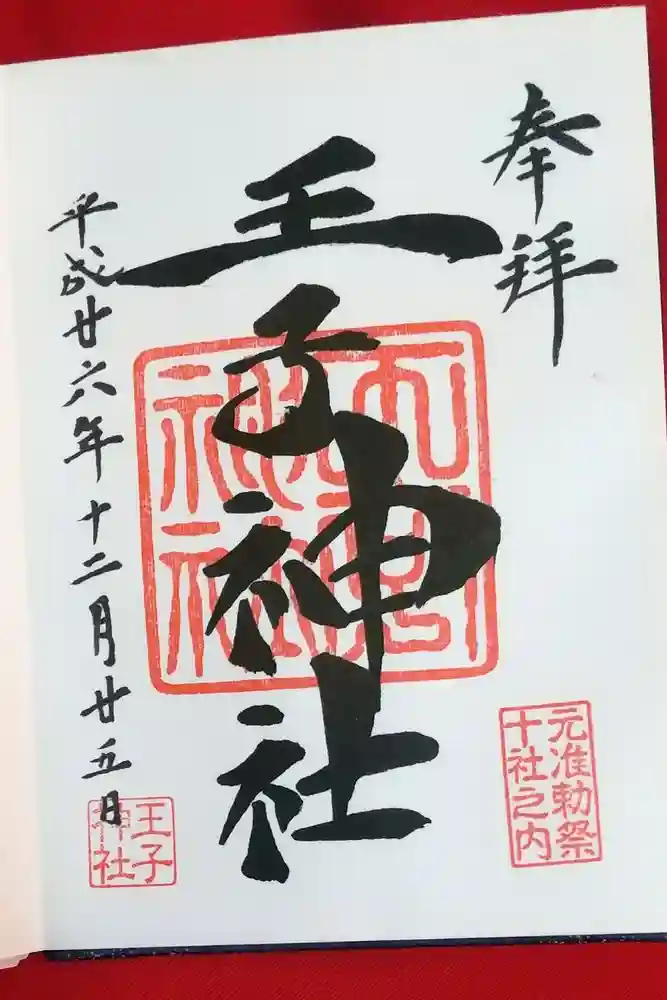 奉拝
王子神社
元准勅祭
十社之内
平成廿六年十二月廿五日
王子
神社